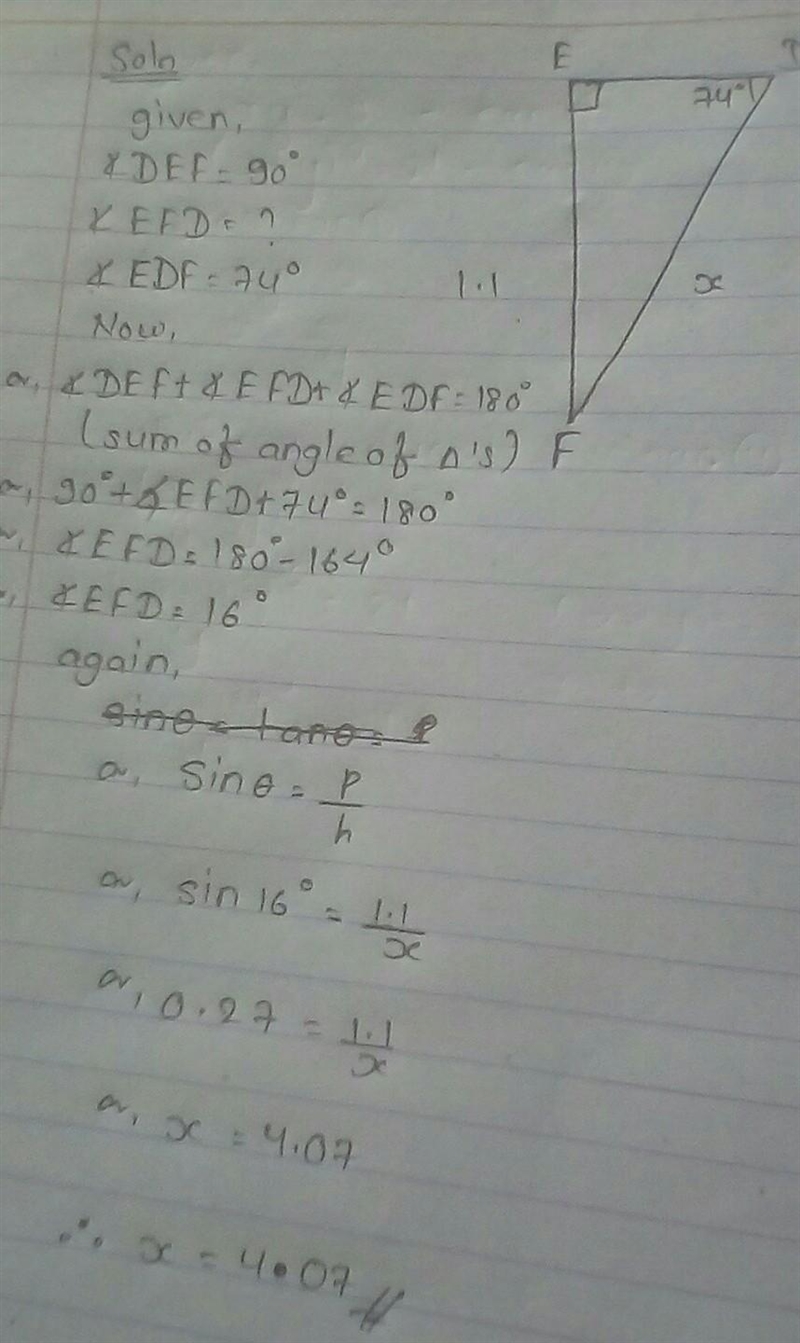 Soln
given,
∡DEF = 90°
∡EFD = ?
∡EDF = 74°
Now,
or, ∡DEF + ∡EFD + ∡EDF = 180°
(sum of angle of Δ's)
or, 90° + ∡EFD + 74° = 180°
or, ∡EFD = 180° - 164°
∡EFD = 16°
again,
sinθ = tanθ = P
or, sinθ = p/h
or, sin 16° = 1.1/x
or, 0.27 = 1.1/x
or, x = 4.07
∴ x = 4.07
E
74°
1.1
x
F